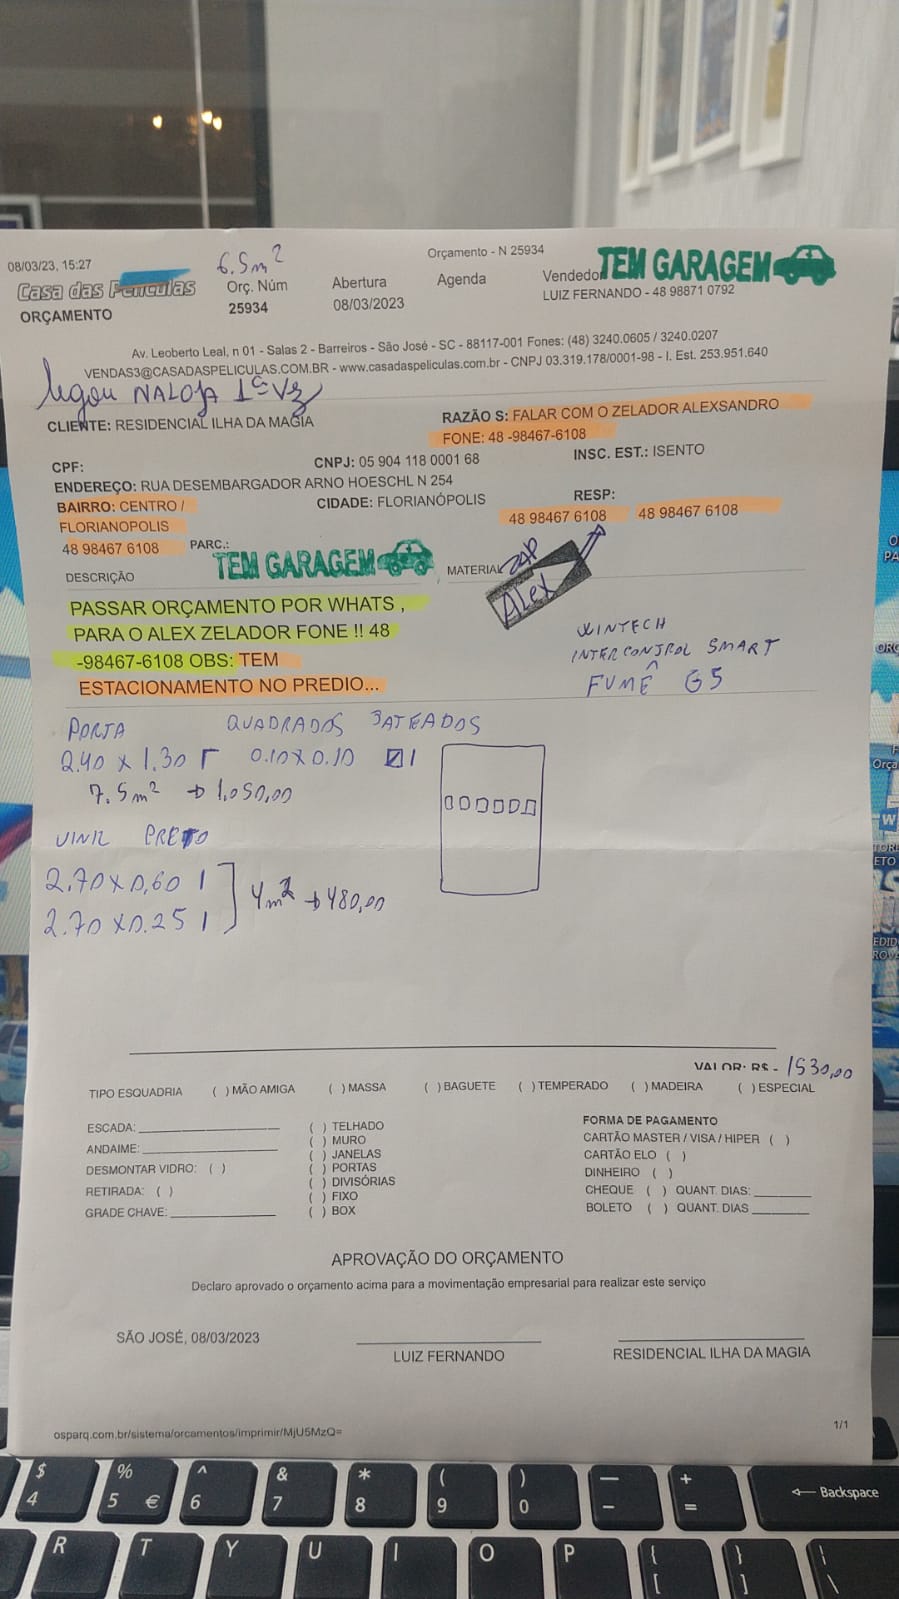 08/03/23, 15:27
6.5m²
Orçamento - N 25934
TEM GARAGEM
Casa das Películas
ORÇAMENTO
Orç. Núm
25934
Abertura
08/03/2023
Agenda
Vendedo
LUIZ FERNANDO - 48 98871 0792
Av. Leoberto Leal, n 01 - Salas 2 - Barreiros - São José - SC - 88117-001 Fones: (48) 3240.0605 / 3240.0207
VENDAS3@CASADASPELICULAS.COM.BR - www.casadaspeliculas.com.br - CNPJ 03.319.178/0001-98 - I. Est. 253.951.640
ligou NA LOJA 1ª Vez
CLIENTE: RESIDENCIAL ILHA DA MAGIA
RAZÃO S: FALAR COM O ZELADOR ALEXSANDRO
FONE: 48 -98467-6108
CPF:
CNPJ: 05 904 118 0001 68
INSC. EST.: ISENTO
ENDEREÇO: RUA DESEMBARGADOR ARNO HOESCHL N 254
BAIRRO: CENTRO /
FLORIANOPOLIS
CIDADE: FLORIANÓPOLIS
RESP:
48 98467 6108
48 98467 6108
48 98467 6108
PARC.:
TEM GARAGEM
MATERIAL
ZAP
Alex
DESCRIÇÃO
PASSAR ORÇAMENTO POR WHATS ,
PARA O ALEX ZELADOR FONE !! 48
-98467-6108 OBS: TEM
ESTACIONAMENTO NO PREDIO...
WINTECH
INTERCONTROL SMART
FUMÊ G5
PORTA
QUADRADOS JATEADOS
2.40 x 1.30
0.10 x 0.10
7.5m² → 1.050,00
VINIL PRETO
2.70 x 0,60 1
2.70 x 0.25 1
4m² → 480,00
VALOR: R$ - 1530,00
TIPO ESQUADRIA ( ) MÃO AMIGA ( ) MASSA ( ) BAGUETE ( ) TEMPERADO ( ) MADEIRA ( ) ESPECIAL
ESCADA:
ANDAIME:
DESMONTAR VIDRO: ( )
RETIRADA: ( )
GRADE CHAVE:
( ) TELHADO
( ) MURO
( ) JANELAS
( ) PORTAS
( ) DIVISÓRIAS
( ) FIXO
( ) BOX
FORMA DE PAGAMENTO
CARTÃO MASTER / VISA / HIPER ( )
CARTÃO ELO ( )
DINHEIRO ( )
CHEQUE ( ) QUANT. DIAS:
BOLETO ( ) QUANT. DIAS
APROVAÇÃO DO ORÇAMENTO
Declaro aprovado o orçamento acima para a movimentação empresarial para realizar este serviço
SÃO JOSÉ, 08/03/2023
LUIZ FERNANDO
RESIDENCIAL ILHA DA MAGIA
osparq.com.br/sistema/orcamentos/imprimir/MjU5MzQ=
1/1
$ % ^ & * ( ) — +
4 5 € 6 7 8 9 0 - =
Backspace
R T Y U I O P { } |
[ ] \